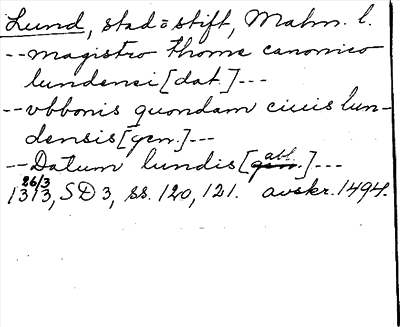 Lund, stad o stift, Malm. l.
--magistro thome canonico
lundensi [dat]---
--vbbonis quondam ciuis lun-
densis [gen.]---
--Datum lundis [gen. abl.]---
1313 26/3, SD 3, ss. 120, 121. avskr. 1494.